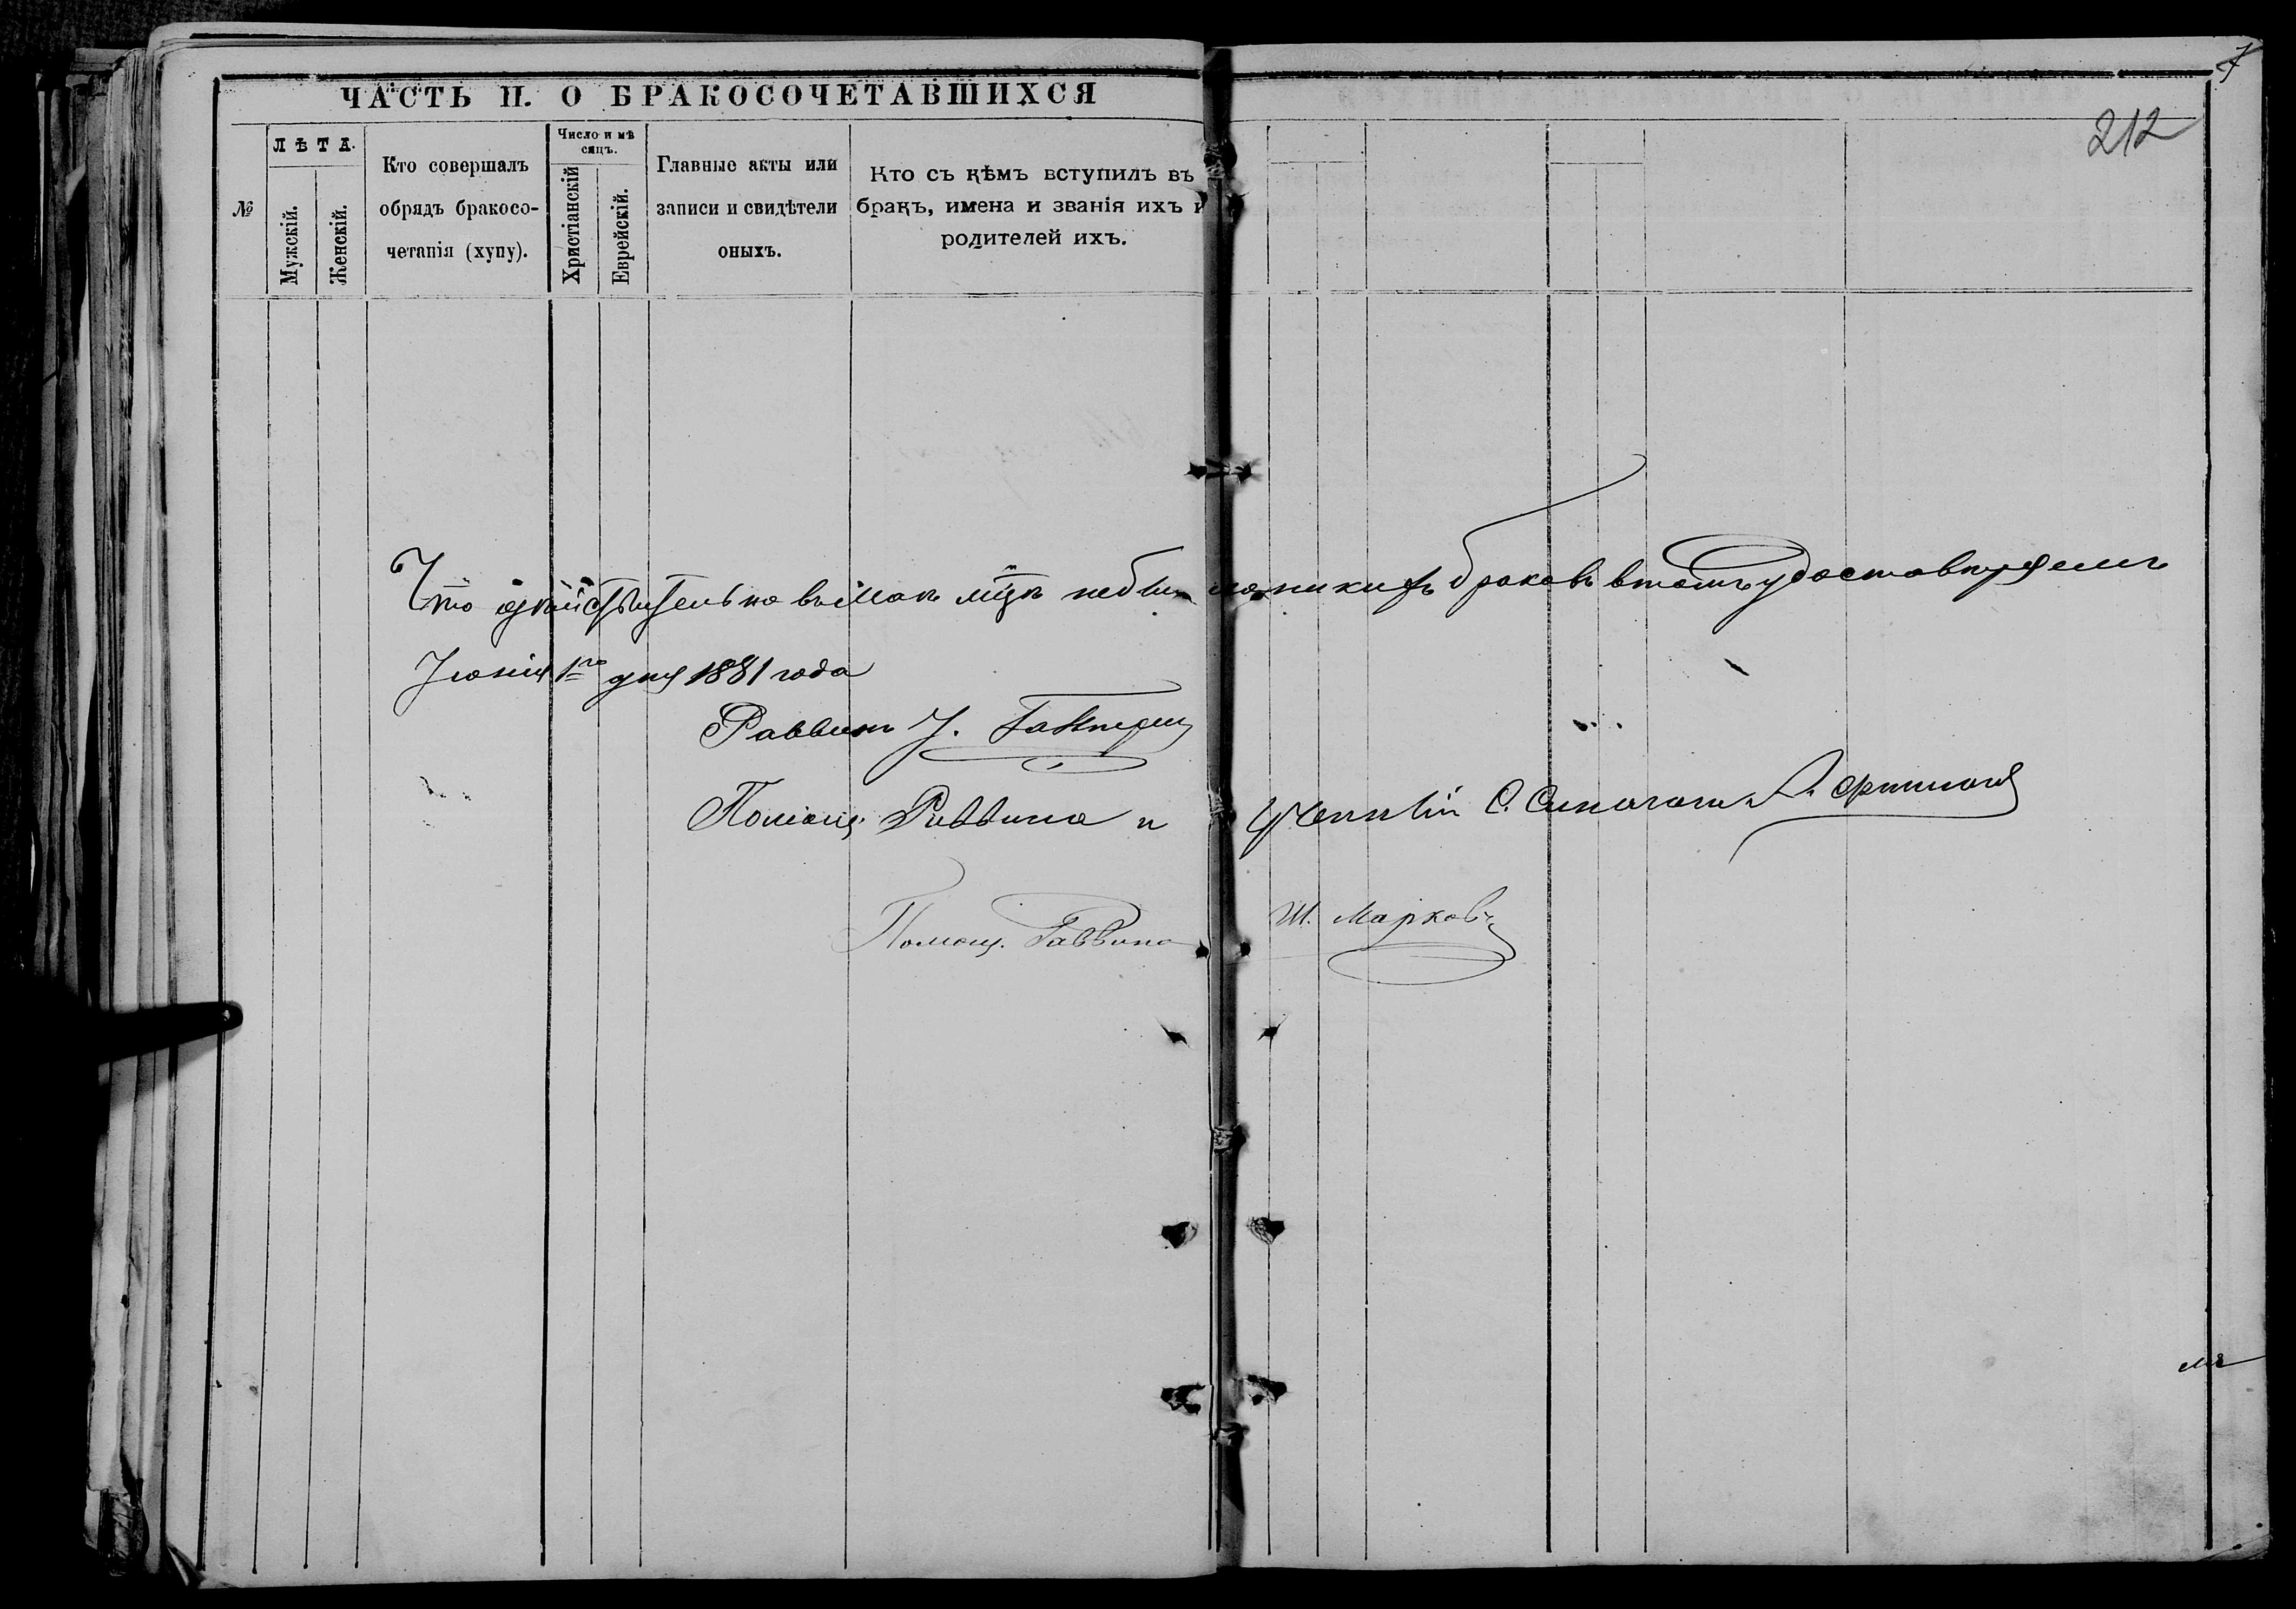 ЧАСТЬ II. О БРАКОСОЧЕТАВШИХСЯ
212
№
ЛѢТА.
Мужскій.
Женскій.
Кто совершалъ
обрядъ бракосо-
четанія (хупу).
Число и мѣ
сяцъ.
Христіанскій
Еврейскій.
Главные акты или
записи и свидѣтели
оныхъ.
Кто съ кѣмъ вступилъ въ
бракъ, имена и званія ихъ и
родителей ихъ.
Что дѣйствительно въ Маѣ мцѣ небыло никикихъ браковъ втомъ удостовѣряемъ
Іюнія 1го дня 1881 года
Раввинъ
Помощ. Раввина и Ученый С.
Помощ. Раввина Ш. Марковъ